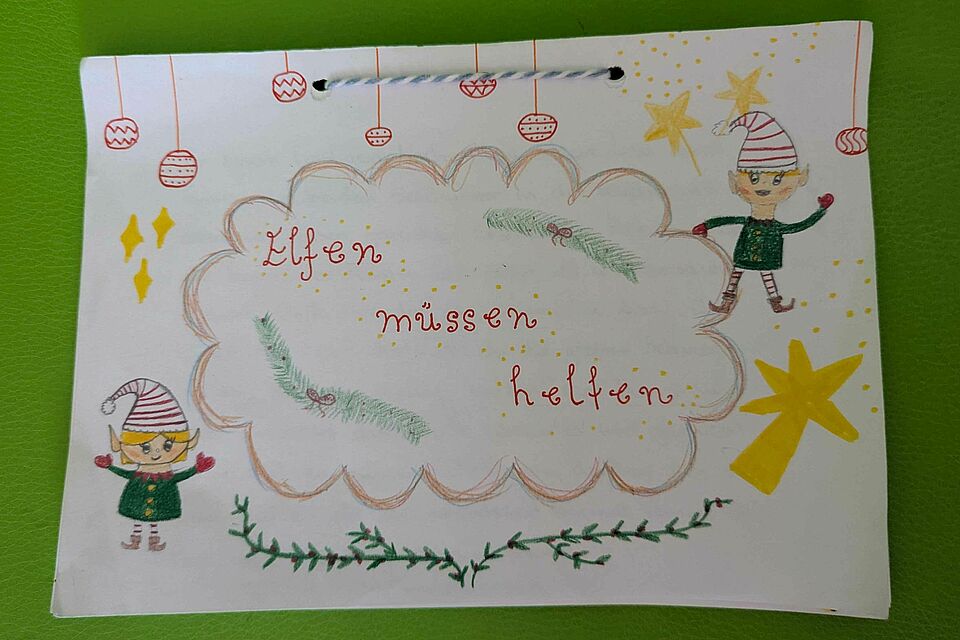 Elfen
müssen
helfen